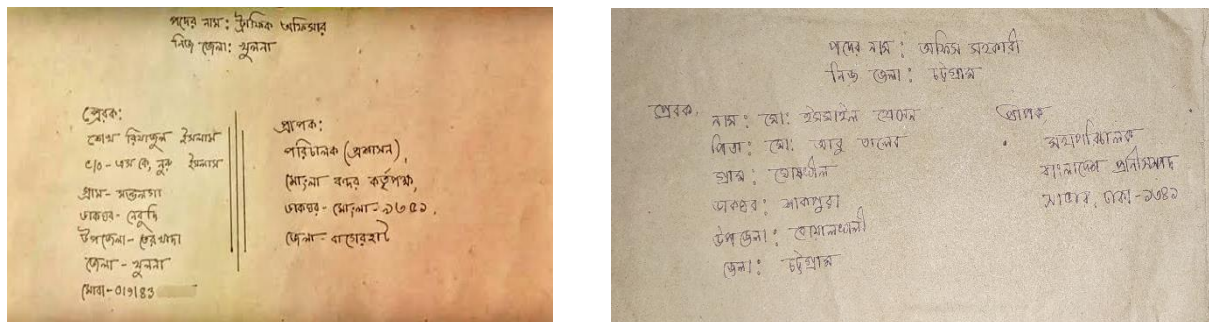 পদের নাম : ট্রাফিক অফিসার
নিজ জেলা : খুলনা
প্রেরক:
শেখ রিয়াজুল ইসলাম
C/O - এস কে, নুরু ইসলাম
গ্রাম -
ডাকঘর -
উপজেলা - তেরখাদা
জেলা - খুলনা
মোবা - 019183
প্রাপক:
পরিচালক (প্রশাসন),
মোংলা বন্দর কর্তৃপক্ষ,
ডাকঘর - মোংলা - ৯৩৫১,
জেলা - বাগেরহাট
পদের নাম : অফিস সহকারী
নিজ জেলা : চট্টগ্রাম
প্রেরক,
নাম : মো: ইসমাইল হোসেন
পিতা : মো: আবু তালেব
গ্রাম :
ডাকঘর : শাকপুরা
উপজেলা : বোয়ালখালী
জেলা : চট্টগ্রাম
প্রাপক
মহাপরিচালক
বাংলাদেশ প্রানীসম্পদ
সাভার, ঢাকা - ১৩৪১